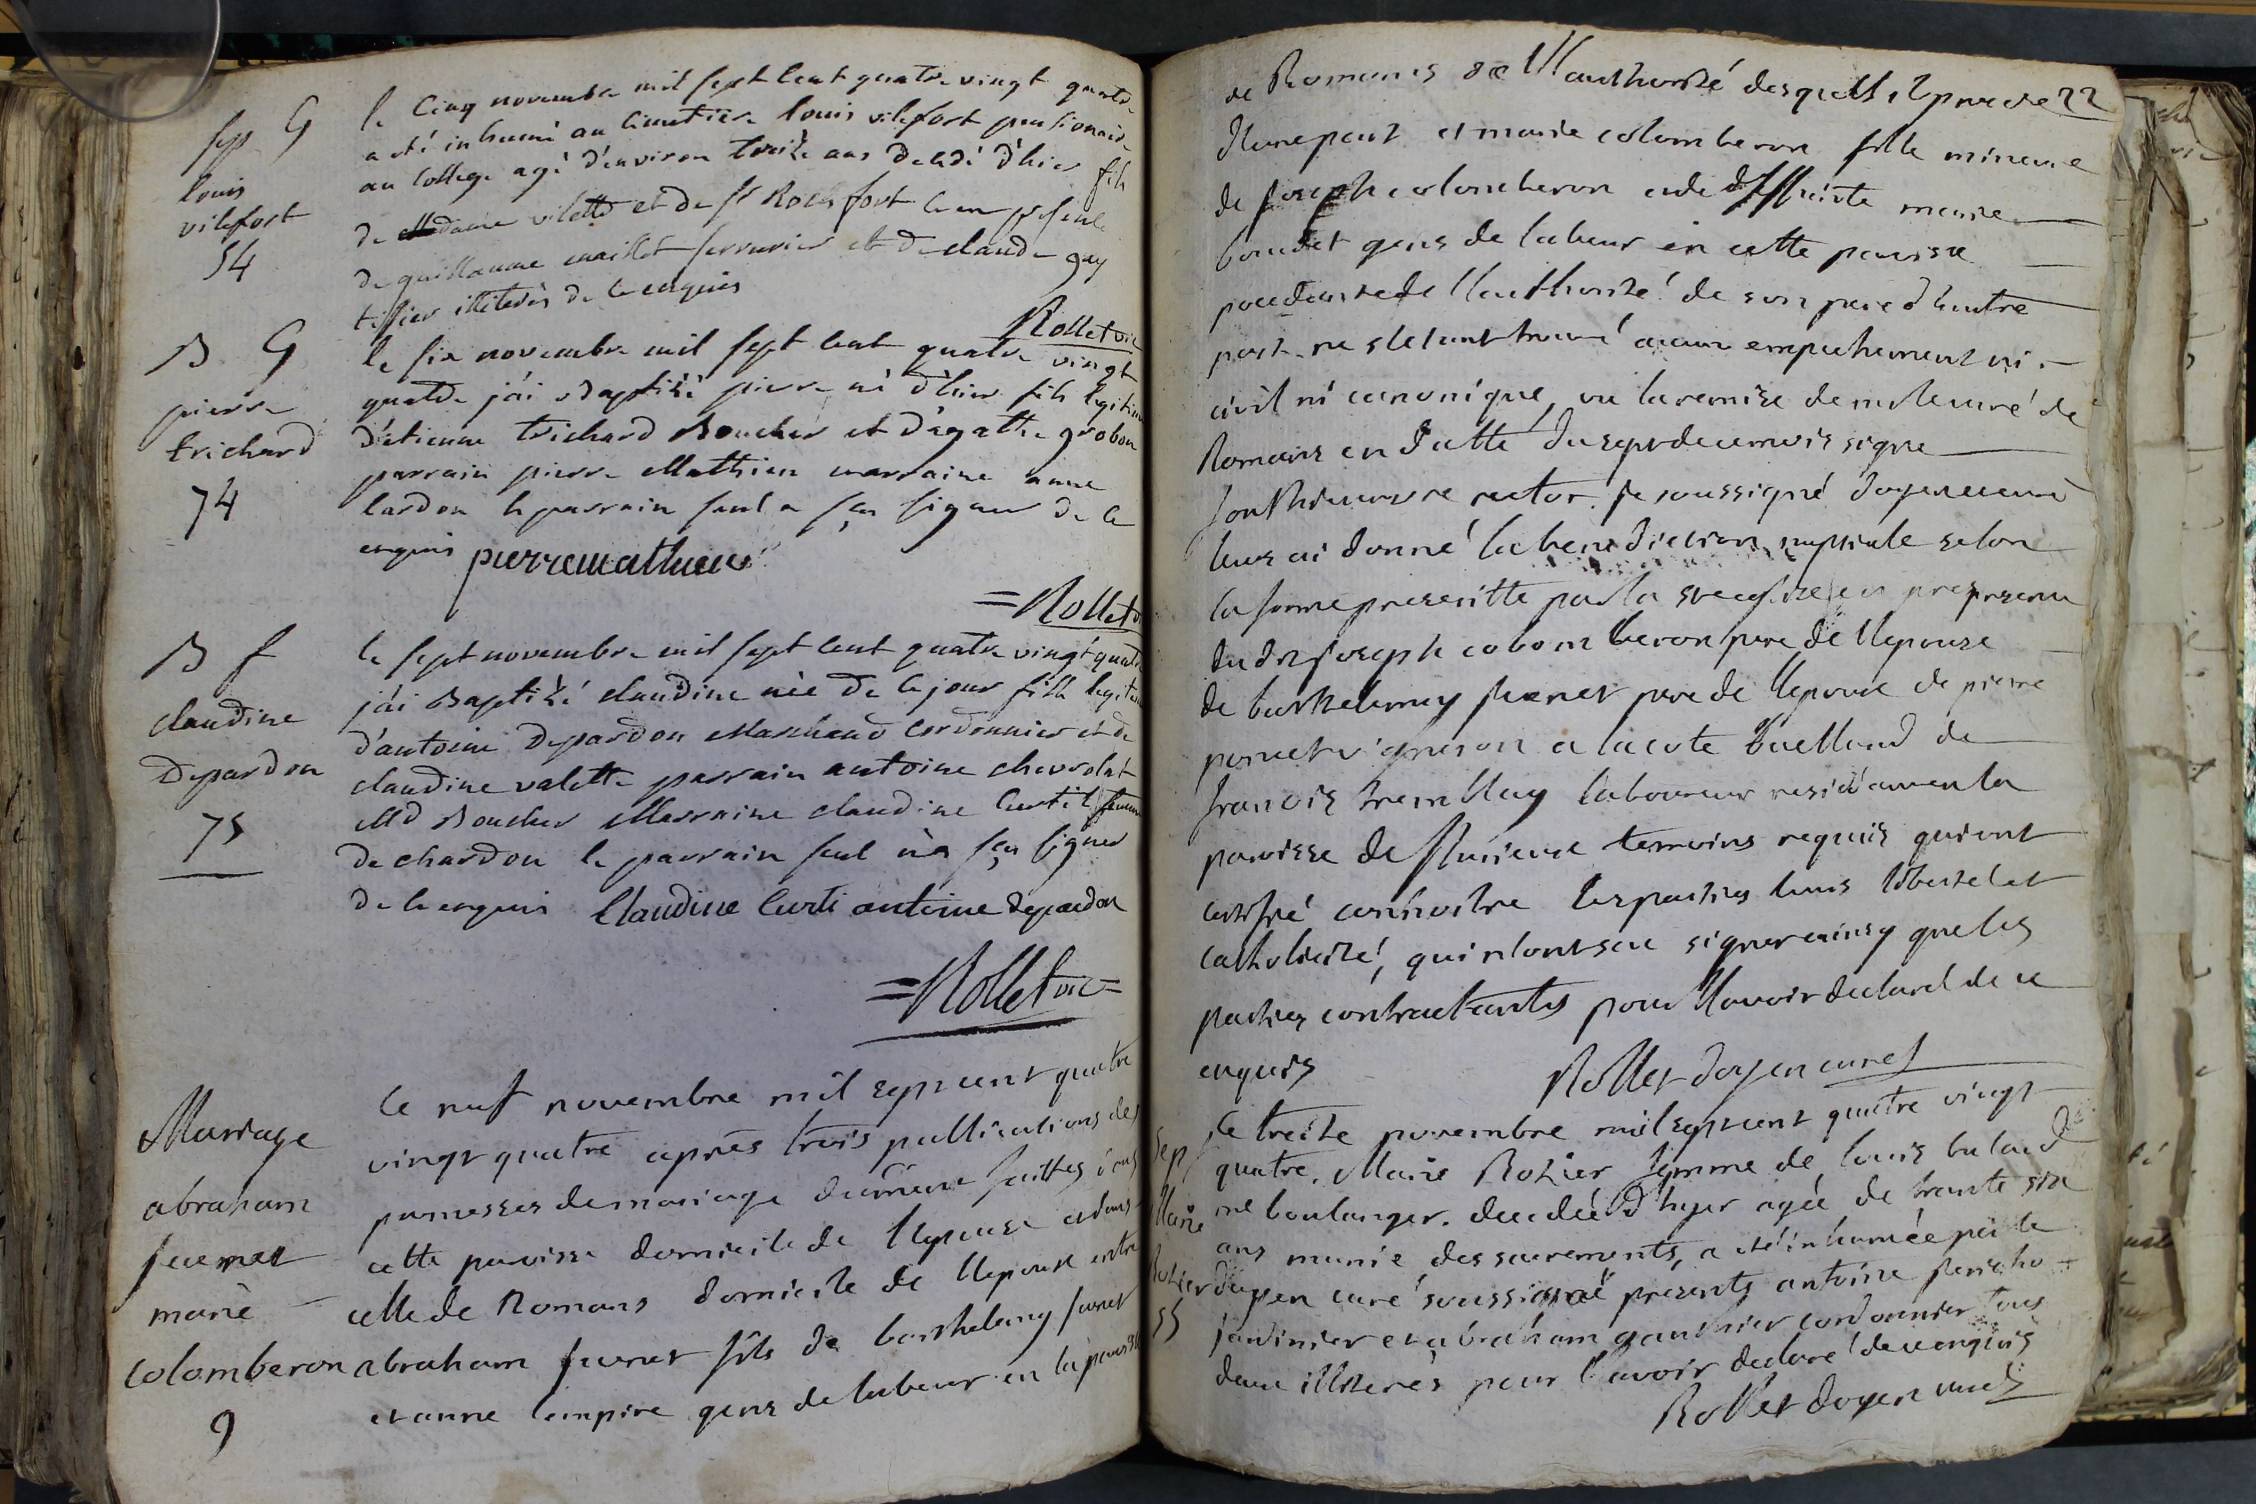 sep G
louis
vilefort
54
le Cinq novembre mil sept Cent quatre vingt quatre
a eté inhumé au Cimetiere louis vilefort pensionaire
au College agé d'environ treize ans decedé d'hier fils
de dame vilette et de sr Rochfort en presence
de guillaume maillet serrurier et de claude guy
tissier illiterés de ce enquis
Rollet vic
B G
pierre
trichard
74
le six novembre mil sept Cent quatre vingt
quatre j'ai Baptizé pierre né d'hier fils legitime
d'etienne trichard Boucher et d'agathe grobon
parrain pierre Mathieu marraine anne
lardon le parrain seul a sçu signer de ce
enquis pierre mathieu
=Rollet vic
B f
claudine
Depardon
75
le sept novembre mil sept Cent quatre vingt quatre
j'ai Baptizé claudine née de ce jour fille legitime
d'antoine Depardon Marchand Cordonnier et de
claudine valette parrain antoine chevrolat
Md Boucher Marraine claudine Curtil femme
de chardon le parrain seul n'a sçu signer
de ce enquis Claudine Curti antoine depardon
=Rollet vic=
Mariage
abraham
marie
Colomberon
9
le neuf novembre mil sept cent quatre
vingt quatre après trois publications des
promesses de mariage d'uement faittes dans
cette paroisse domicile de l'epouse et dans
celle de Romans domicile de l'epoux entre
abraham fils de barthelemy
et anne lempire gens de labeur en la paroisse
de Romans de l'authorité desquels il procede 22
d'une part et marie colomberon fille mineure
de joseph colomberon et de deffuinte marie
boudet gens de labeur en cette paroisse
procedante de l'authorité de son pere d'autre
part. ne s'etant trouvé aucun empechement ni
civil ni canonique, vu la remise de mr le curé de
Romans en datte du sept de ce mois signé
rector. je soussigné doyen curé
leurs ai donné la benediction nuptiale selon
la forme prescritte par la ste eglise en presence
du dit joseph colomberon pere de l'epouse
de barthelemy pere de l'epoux de pierre
vigneron a la cote de
francois tremblay laboureur residant en la
paroisse de fleurieux temoins requis qui ont
certifié connoitre les parties leurs liberté et
catholicité, qui n'ont scu signer ainsy que les
parties contractantes pour l'avoir declaré de ce
enquis
Rollet doyen curé
sep
Marie
Rozier
55
le treize novembre mil sept cent quatre vingt
quatre. Marie Rozier femme de louis baland
me boulanger. decedée d'hyer agée de trante six
ans munie des sacrements, a eté inhumée par le
doyen curé soussigné presents antoine
jardinier et abraham gauthier cordonnier tous
deux illiterés pour l'avoir declaré de ce enquis
Rollet doyen curé